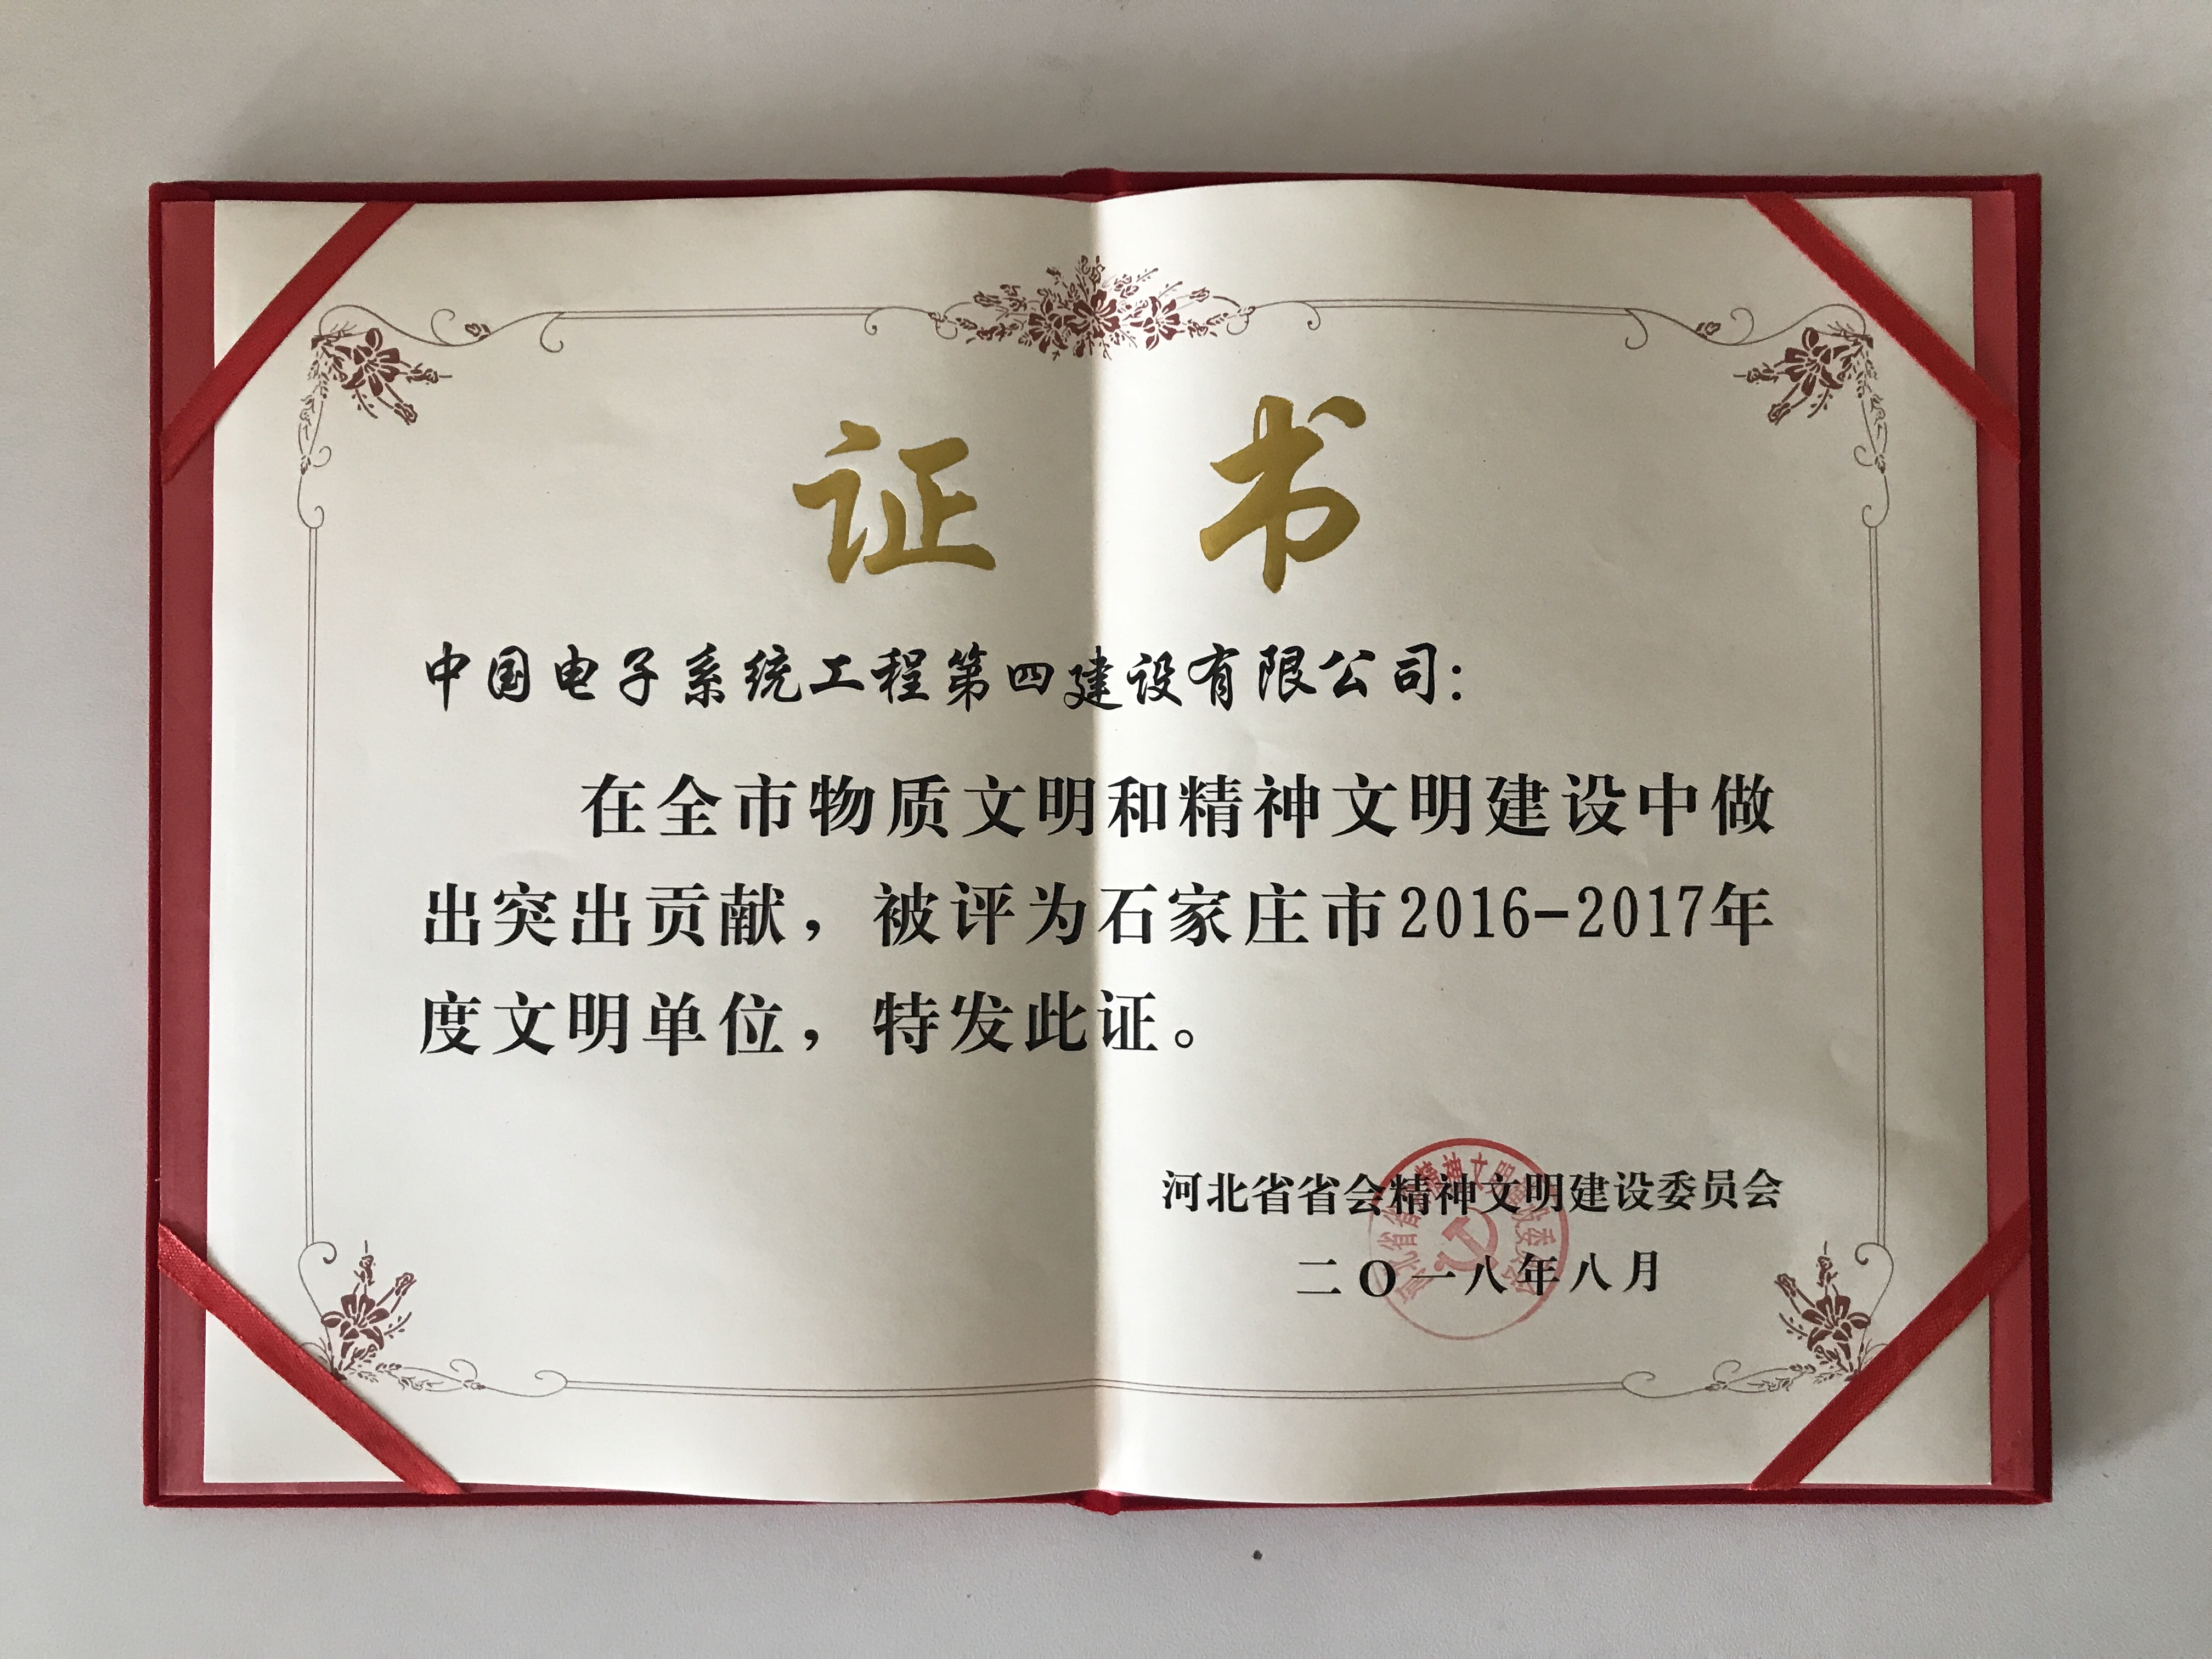 证书
中国电子系统工程第四建设有限公司：
在全市物质文明和精神文明建设中做
出突出贡献，被评为石家庄市2016-2017年
度文明单位，特发此证。
河北省省会精神文明建设委员会
二〇一八年八月